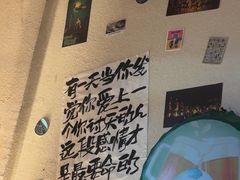 有一天当你发
觉你爱上一
个你讨厌的人
这段感情才
是最要命的